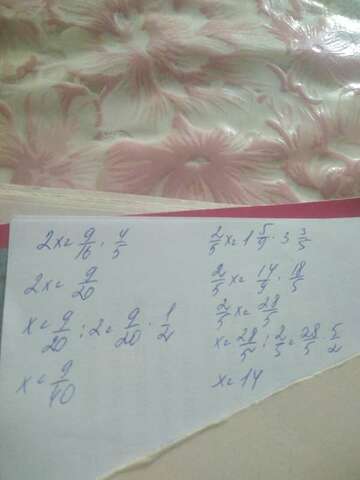 2x=9/16·4/5
2x=9/20
x=9/20:2=9/20·1/2
x=9/40
2/5x=1 5/9·3 3/5
2/5x=14/9·18/5
2/5x=28/5
x=28/5:2/5=28/5·5/2
x=14